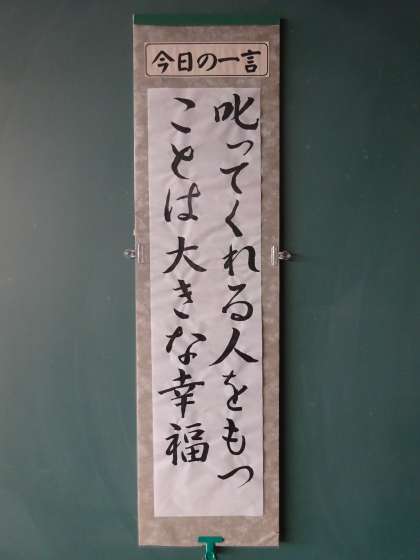 今日の一言
叱ってくれる人をもつ
ことは大きな幸福